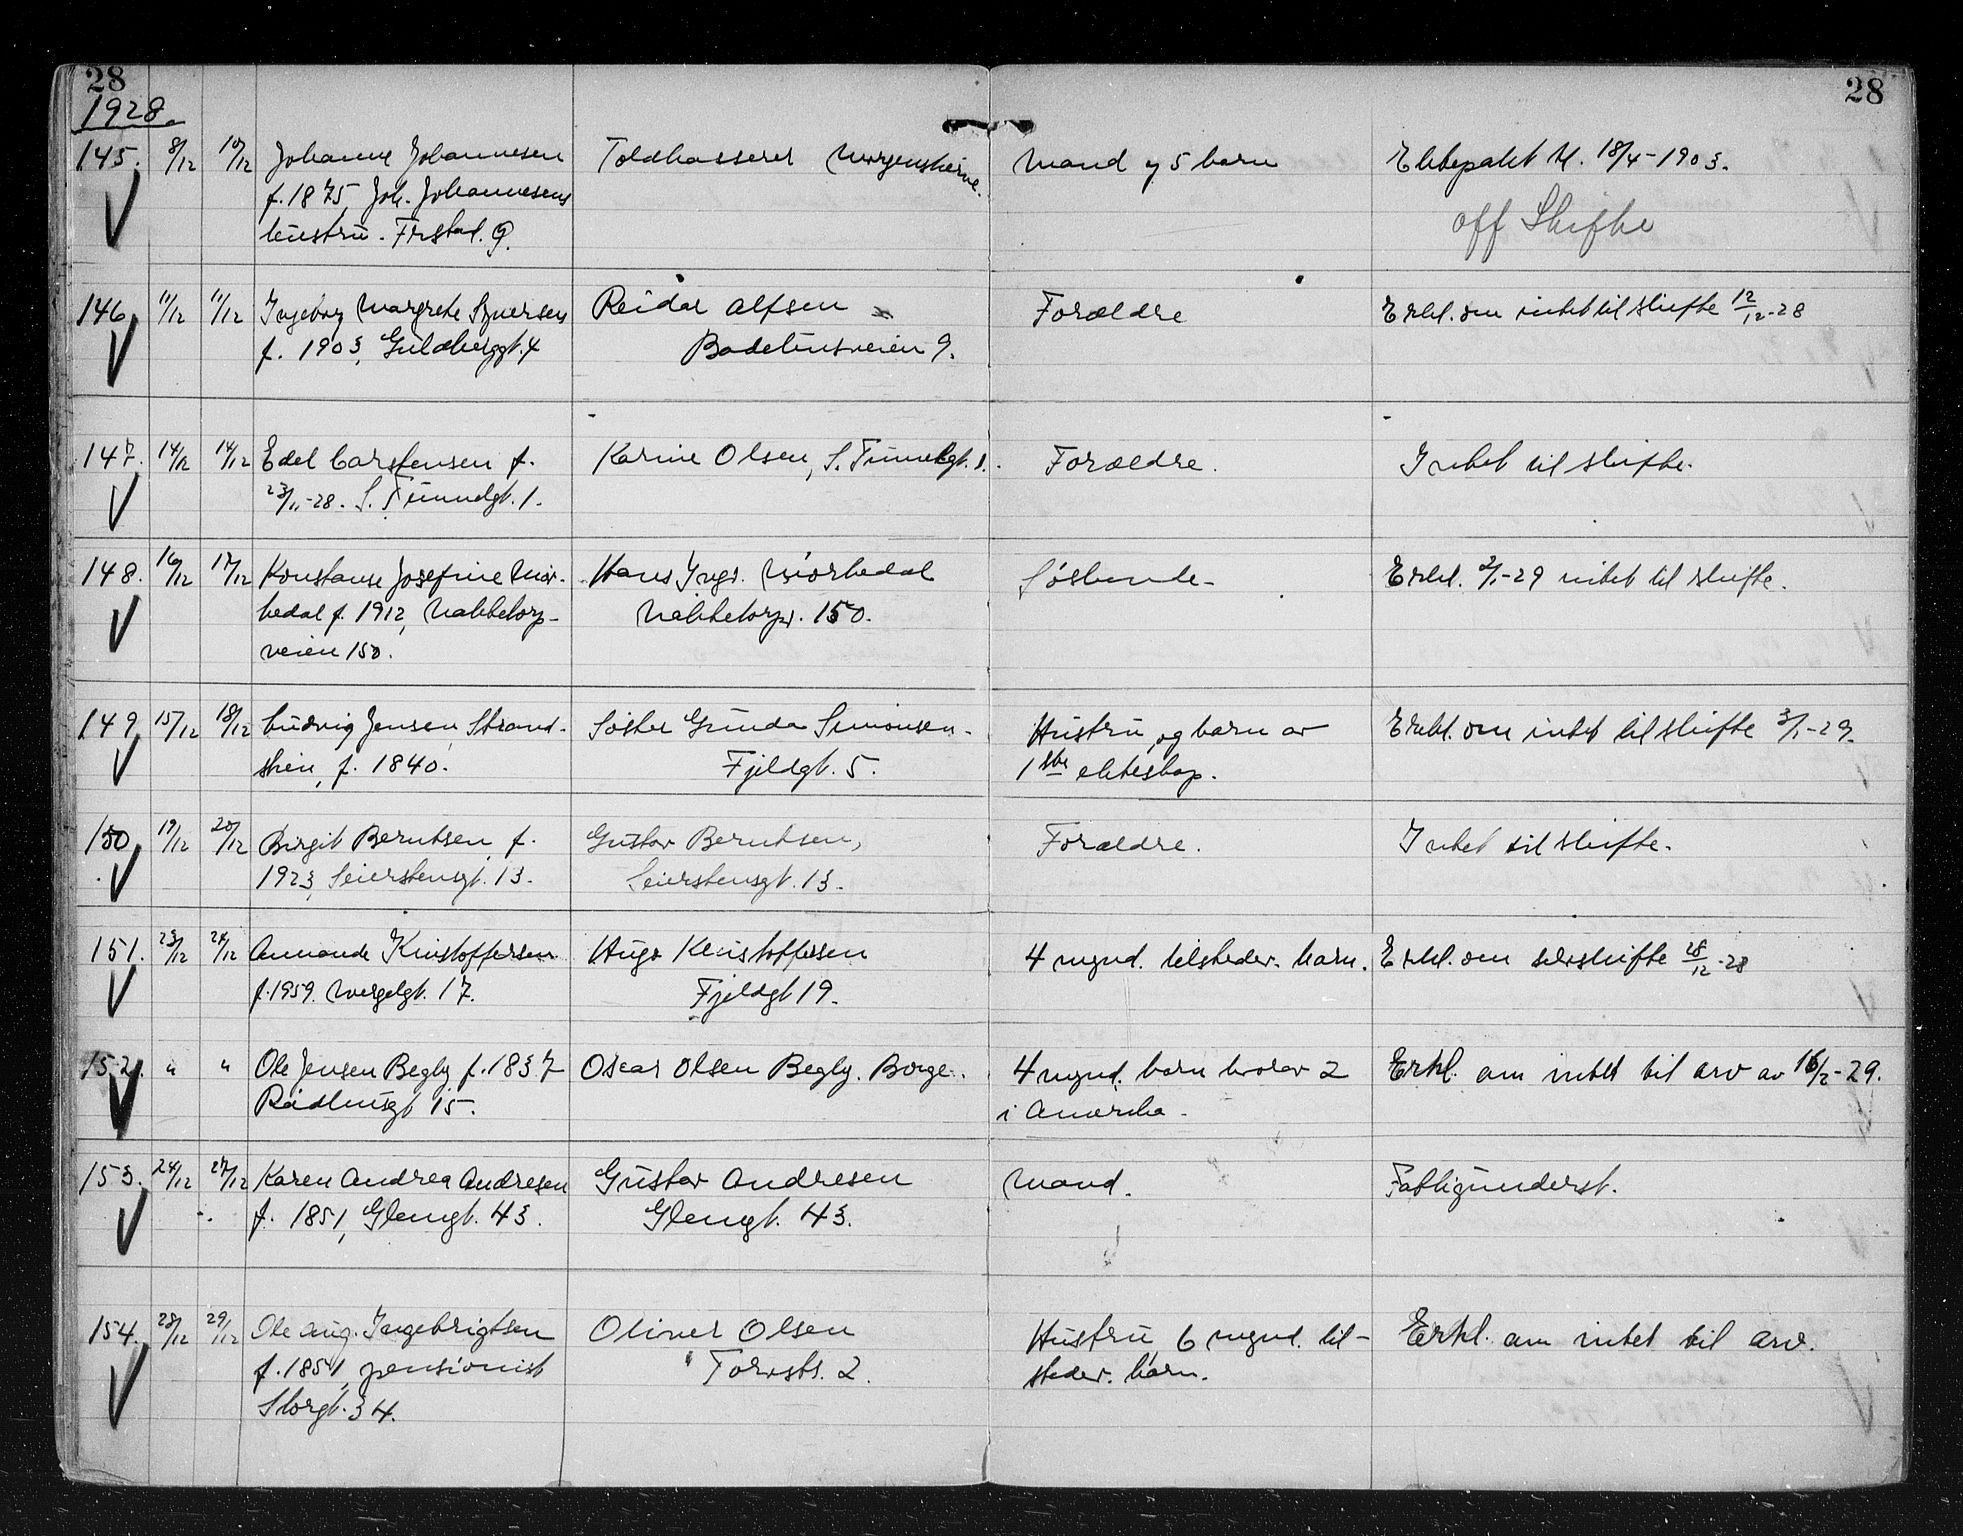 28
28
1928.
145. 8/12 10/12 Johanne Johannesen
f. 1875, Joh. Johannesens
hustru. Frstad. 9.
Toldkasserer Morgenstierne.
Mand og 5 barn
Ektepakt tl. 18/4-1903.
off Skifte
146. 11/12 11/12 Ingeborg Margrete Syversen
f. 1903, Guldbergt. 4
Reidar Alfsen
Badehusveien 9.
Forældre
Erkl. om intet til skifte 12/12-28
147. 14/12 14/12 Edel Carstensen f.
23/11-28. S. Tunnelgt. 1.
Karine Olsen, S. Tunnelgt. 1.
Forældre.
Intet til skifte.
148. 16/12 17/12 Konstanse Josefine
f. 1912, Nabbetorp-
veien 150.
Hans Ingv.
Nabbetorpv. 150.
Søskende-
Erkl. 2/1-29 intet til skifte.
149. 15/12 18/12 Ludvig Jensen, Strand-
skien, f. 1840.
Søster Gunda Simonsen-
Fjeldgt. 5.
Hustru, og barn av
1ste ekteskap.
Erkl. om intet til skifte 3/1-29.
150. 19/12 20/12 Birgit Berntsen, f.
1923, Seierstensgt. 13.
Gustav Berntsen,
Seierstensgt. 13.
Forældre.
Intet til skifte.
151. 23/12 24/12 Amande Kristoffersen
f. 1959. Wergelgt. 17.
Hugo Kristoffersen
Fjeldgt 19.
4 mynd. tilsteder. barn.
Erkl. om selvskifte 28/12-28
152. " " Ole Jensen Begby f. 1837
Rådhusgt 15.
Oscar Olsen Begby. Borge.
4 mynd. barn hvorav 2
i Amerika-
Erkl. om intet til arv av 16/2-29.
153. 24/12 27/12 Karen Andrea Andresen
f. 1851, Glengt. 43.
Gustav Andresen
Glengt. 43.
Mand.
Fattigunderst.
154. 28/12 29/12 Ole Aug. Ingebrigtsen
f. 1851, pensionist
Storgt. 34.
Oliver Olsen
Torvstr. 2.
Hustru, 6 mynd. til-
steder. barn.
Erkl. om intet til arv.